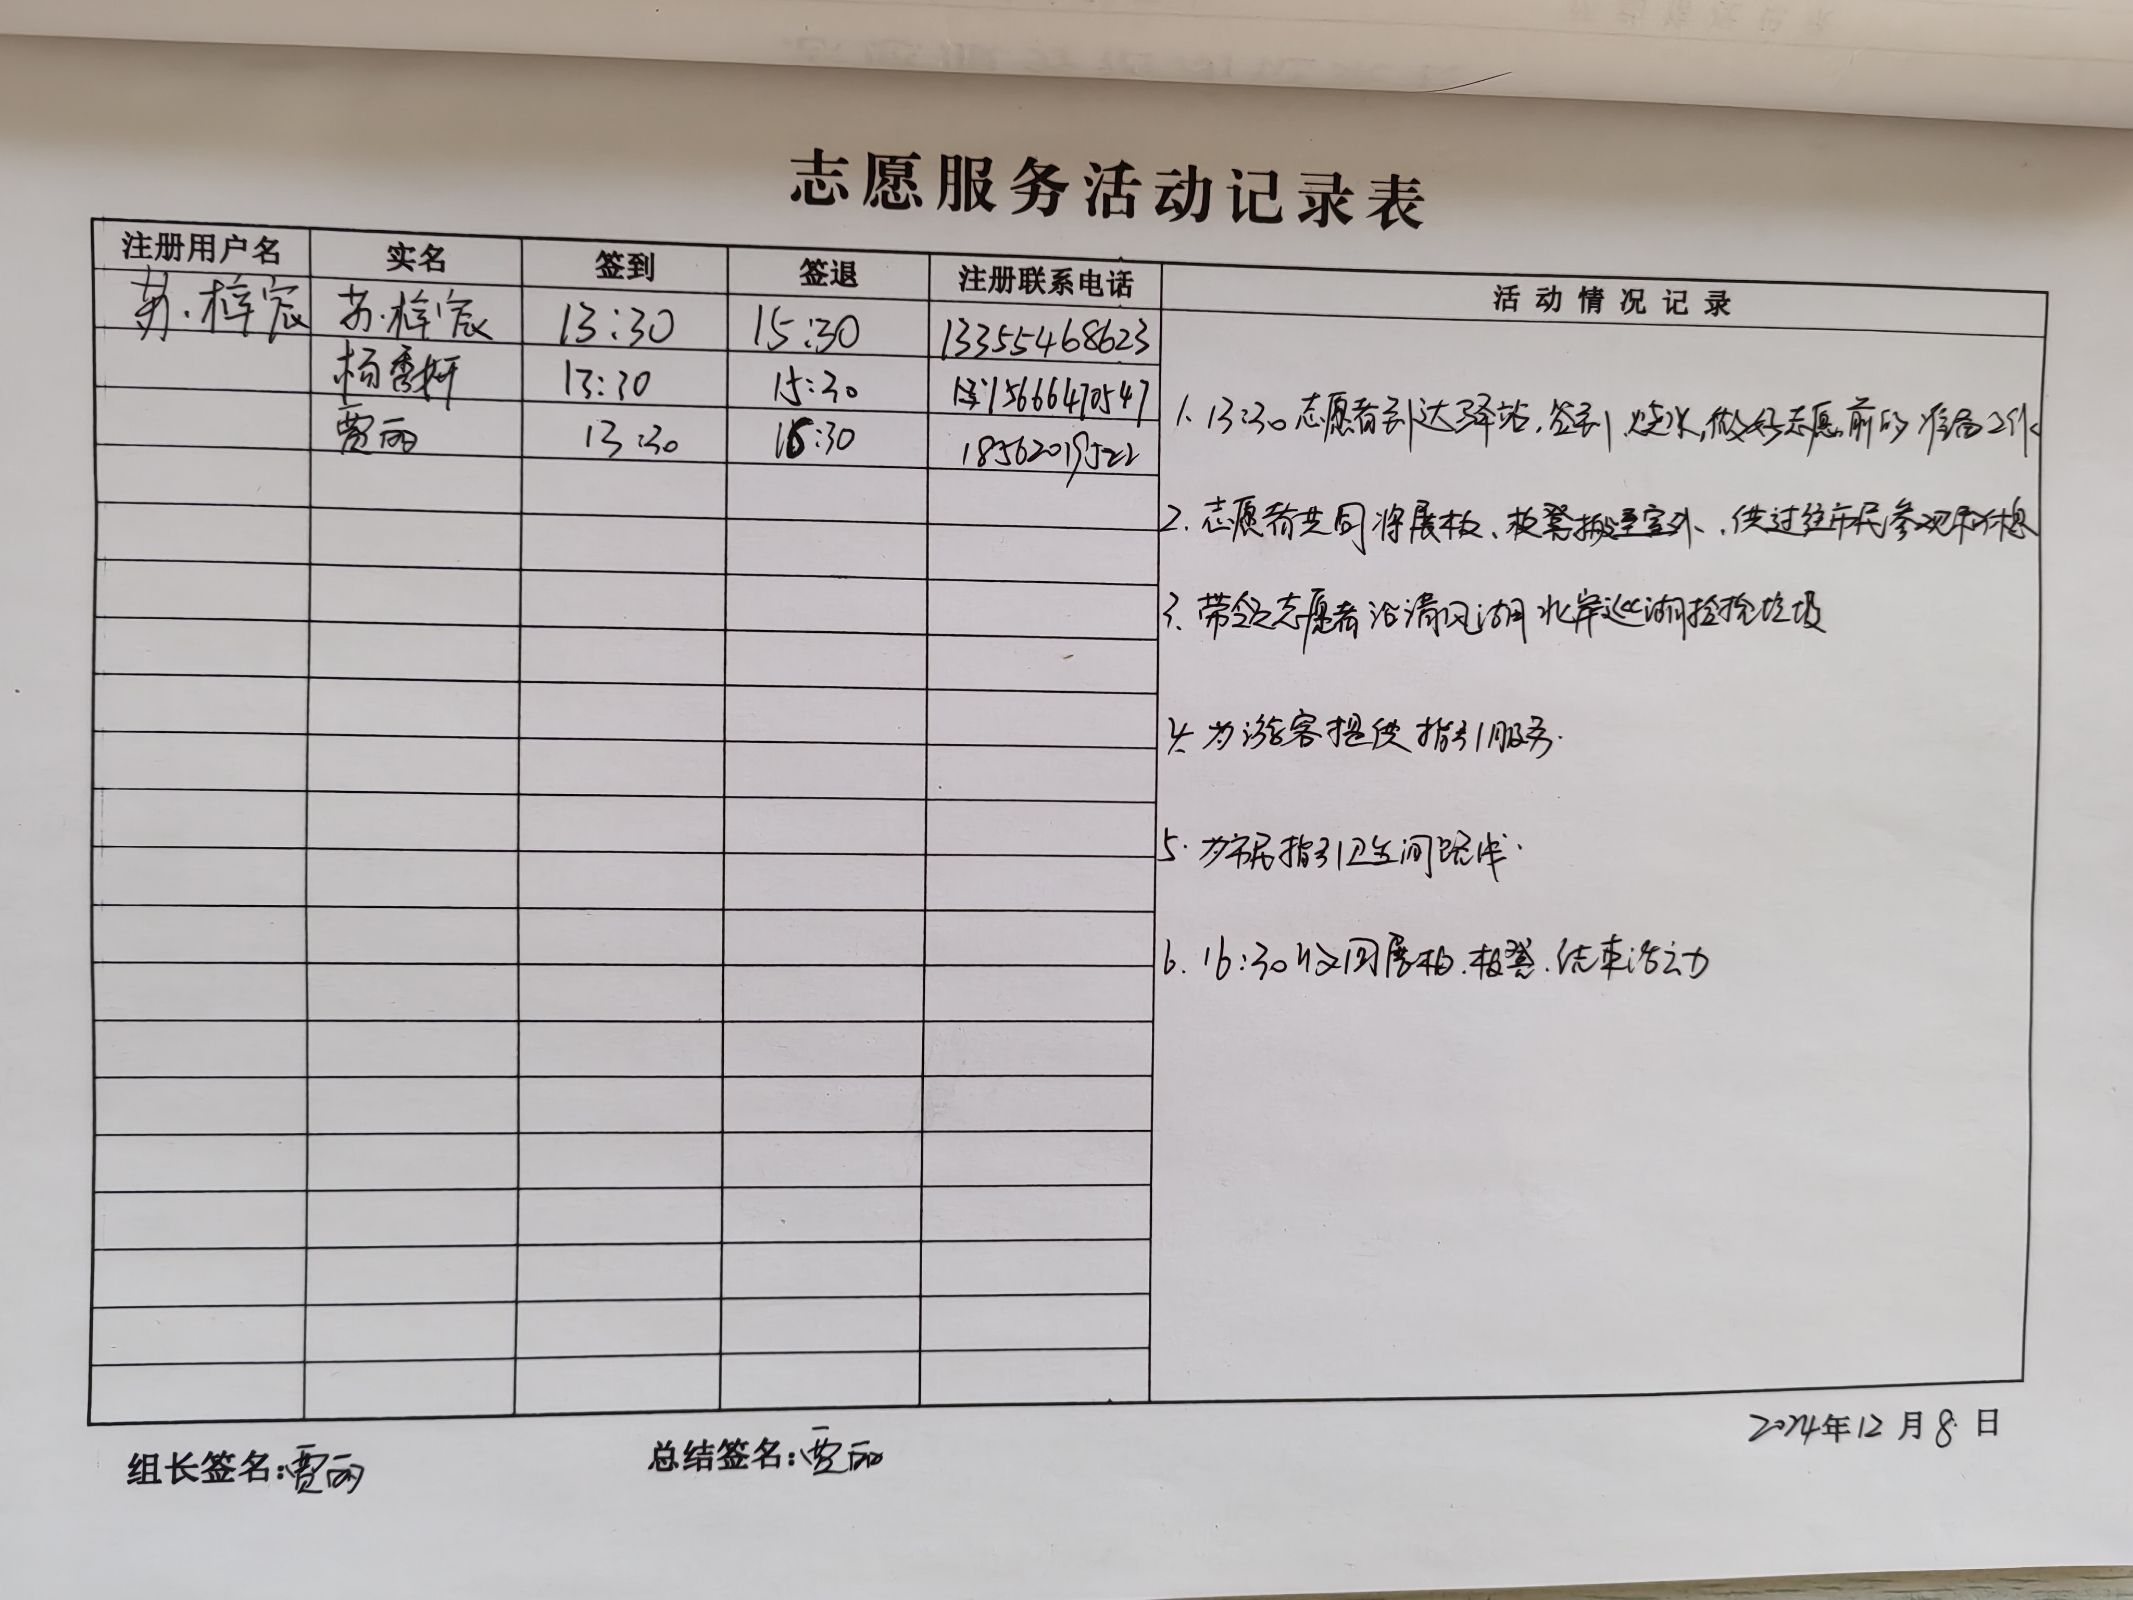 志愿服务活动记录表
注册用户名 实名 签到 签退 注册联系电话 活动情况记录
苏梓宸 苏梓宸 13:30 15:30 13355468623
杨秀妍 13:30 15:30 15666470547
贾丽 13:30 15:30 18562019522
1. 13:30志愿者到达驿站,签到,烧水,做好志愿前的准备工作
2. 志愿者共同将展板、板凳搬至室外,供过往市民参观和休息
3. 带领志愿者沿清风湖北岸巡湖捡拾垃圾
4. 为游客提供指引服务.
5. 为市民指引卫生间路线.
6. 16:30收回展板.板凳.结束活动
2024年12月8日
组长签名:贾丽 总结签名:贾丽